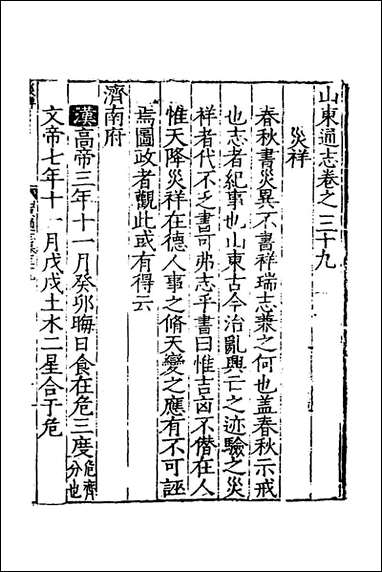 山東通志卷之三十九
災祥
春秋書災異不書祥瑞志兼之何也盖春秋示戒
也志者紀事也山東古今治亂興亡之迹驗之災
祥者代不乏書可弗志乎書曰惟吉凶不僭在人
惟天降災祥在德人事之脩天變之應有不可誣
焉圖政者觀此或有得云
濟南府
漢高帝三年十一月癸卯晦日食在危三度危齊分也
文帝七年十一月戊戌土木二星合于危